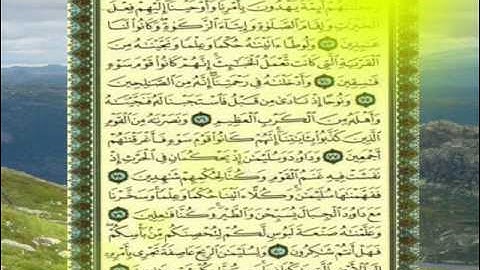 وَجَعَلْنَٰهُمْ أَئِمَّةً يَهْدُونَ بِأَمْرِنَا وَأَوْحَيْنَآ إِلَيْهِمْ فِعْلَ
ٱلْخَيْرَٰتِ وَإِقَامَ ٱلصَّلَوٰةِ وَإِيتَآءَ ٱلزَّكَوٰةِ وَكَانُوا۟ لَنَا
عَٰبِدِينَ ٧٣ وَلُوطًا ءَاتَيْنَٰهُ حُكْمًا وَعِلْمًا وَنَجَّيْنَٰهُ مِنَ
ٱلْقَرْيَةِ ٱلَّتِى كَانَت تَّعْمَلُ ٱلْخَبَٰٓئِثَ إِنَّهُمْ كَانُوا۟ قَوْمَ سَوْءٍ
فَٰسِقِينَ ٧٤ وَأَدْخَلْنَٰهُ فِى رَحْمَتِنَآ إِنَّهُۥ مِنَ ٱلصَّٰلِحِينَ
٧٥ وَنُوحًا إِذْ نَادَىٰ مِن قَبْلُ فَٱسْتَجَبْنَا لَهُۥ فَنَجَّيْنَٰهُ
وَأَهْلَهُۥ مِنَ ٱلْكَرْبِ ٱلْعَظِيمِ ٧٦ وَنَصَرْنَٰهُ مِنَ ٱلْقَوْمِ
ٱلَّذِينَ كَذَّبُوا۟ بِـَٔايَٰتِنَآ إِنَّهُمْ كَانُوا۟ قَوْمَ سَوْءٍ فَأَغْرَقْنَٰهُمْ
أَجْمَعِينَ ٧٧ وَدَاوُۥدَ وَسُلَيْمَٰنَ إِذْ يَحْكُمَانِ فِى ٱلْحَرْثِ إِذْ
نَفَشَتْ فِيهِ غَنَمُ ٱلْقَوْمِ وَكُنَّا لِحُكْمِهِمْ شَٰهِدِينَ ٧٨
فَفَهَّمْنَٰهَا سُلَيْمَٰنَ وَكُلًّا ءَاتَيْنَا حُكْمًا وَعِلْمًا وَسَخَّرْنَا
مَعَ دَاوُۥدَ ٱلْجِبَالَ يُسَبِّحْنَ وَٱلطَّيْرَ وَكُنَّا فَٰعِلِينَ ٧٩
وَعَلَّمْنَٰهُ صَنْعَةَ لَبُوسٍ لَّكُمْ لِتُحْصِنَكُم مِّنۢ بَأْسِكُمْ
فَهَلْ أَنتُمْ شَٰكِرُونَ ٨٠ وَلِسُلَيْمَٰنَ ٱلرِّيحَ عَاصِفَةً تَجْرِى بِأَمْرِهِۦٓ